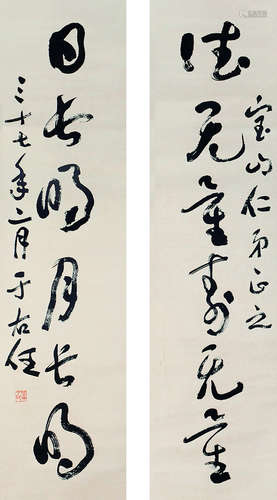 宝山仁弟正之
德无量寿无量
日长明月长明
三十七年二月于右任